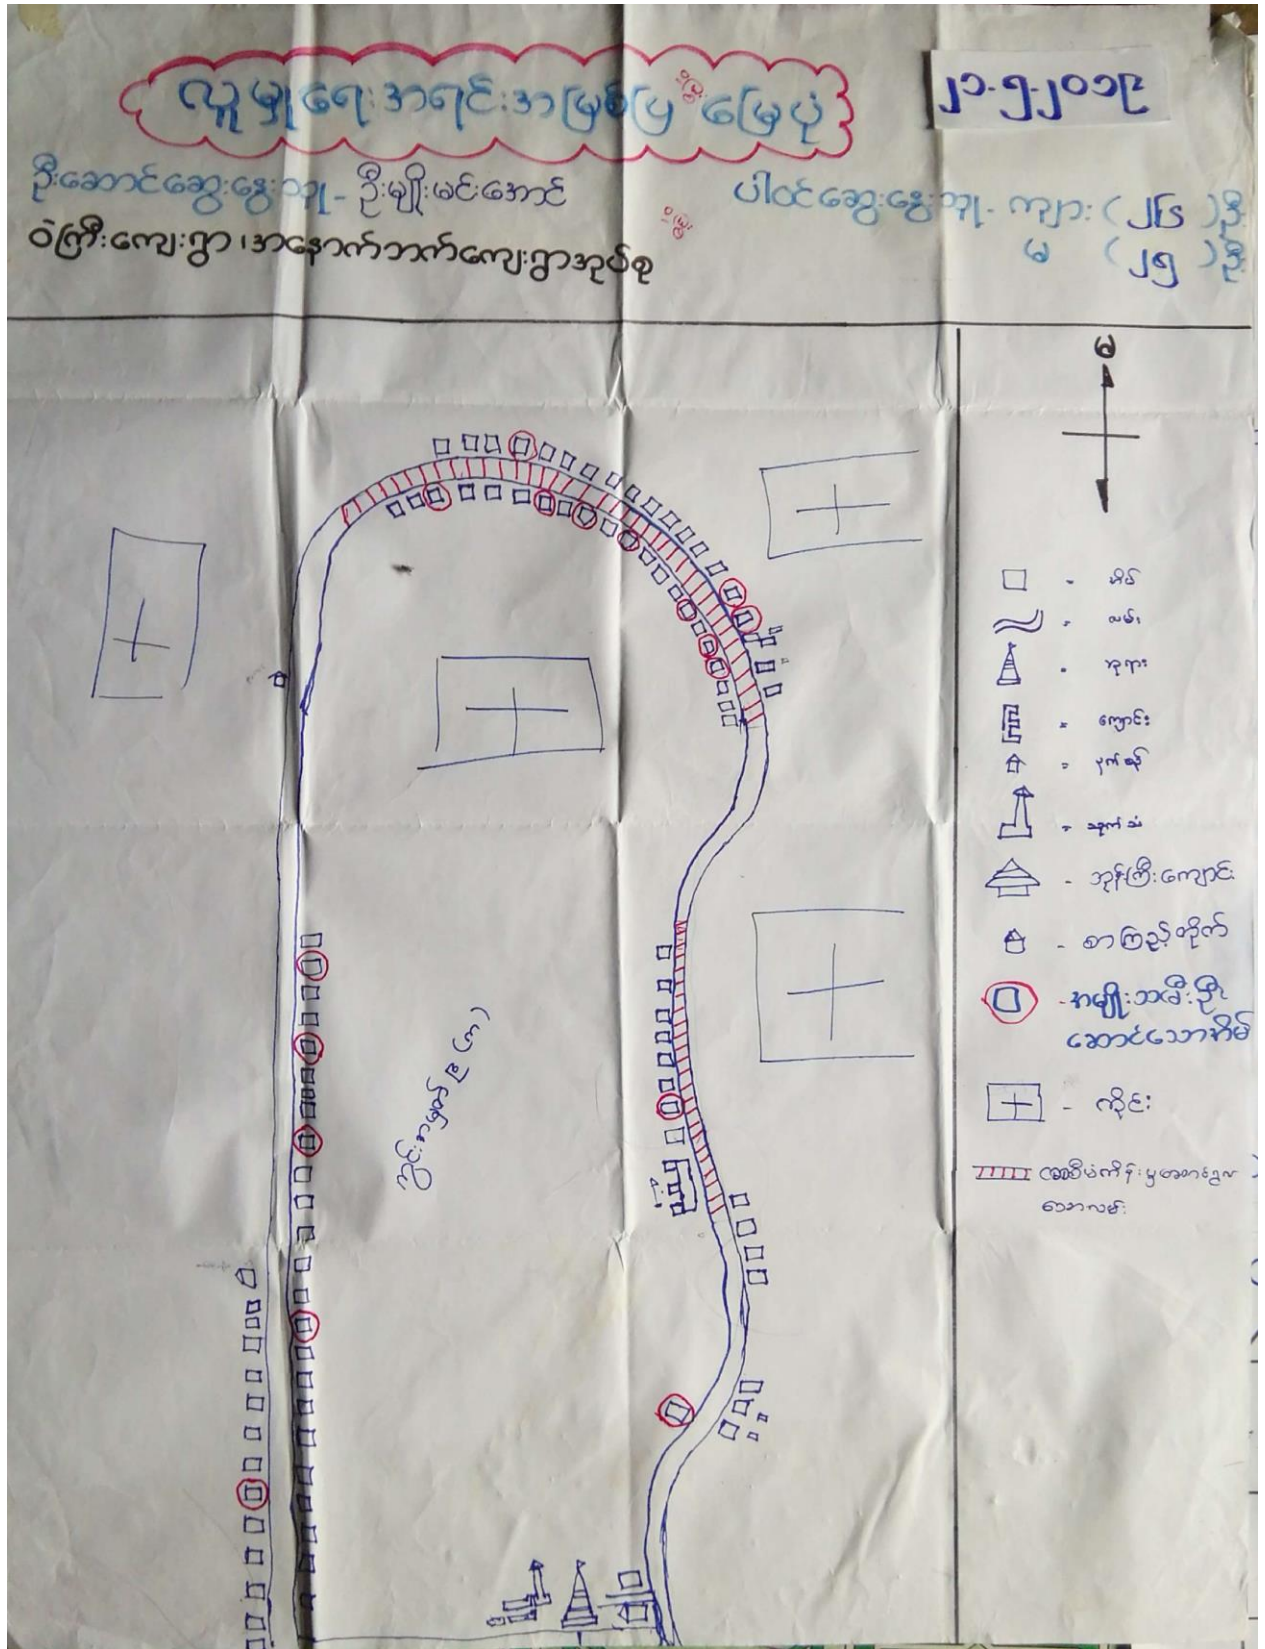 လူမှုရေးအရင်းအမြစ်ပြမြေပုံ
၂၁.၅.၂၀၁၉
ဦးဆောင်ဆွေးနွေးသူ - ဦးမျိုးမင်းအောင်
ပါဝင်ဆွေးနွေးသူ - ကျား (၂၆) ဦး
မ (၂၅) ဦး
ဝဲကြီးကျေးရွာ၊ အနောက်ဘက်ကျေးရွာအုပ်စု
မ
- အိမ်
- လမ်း
- ဘုရား
- ကျောင်း
- ဘုန်းကြီးကျောင်း
- စာကြည့်တိုက်
- အမျိုးသမီးဦး
ဆောင်သောအိမ်
- ကိုင်း